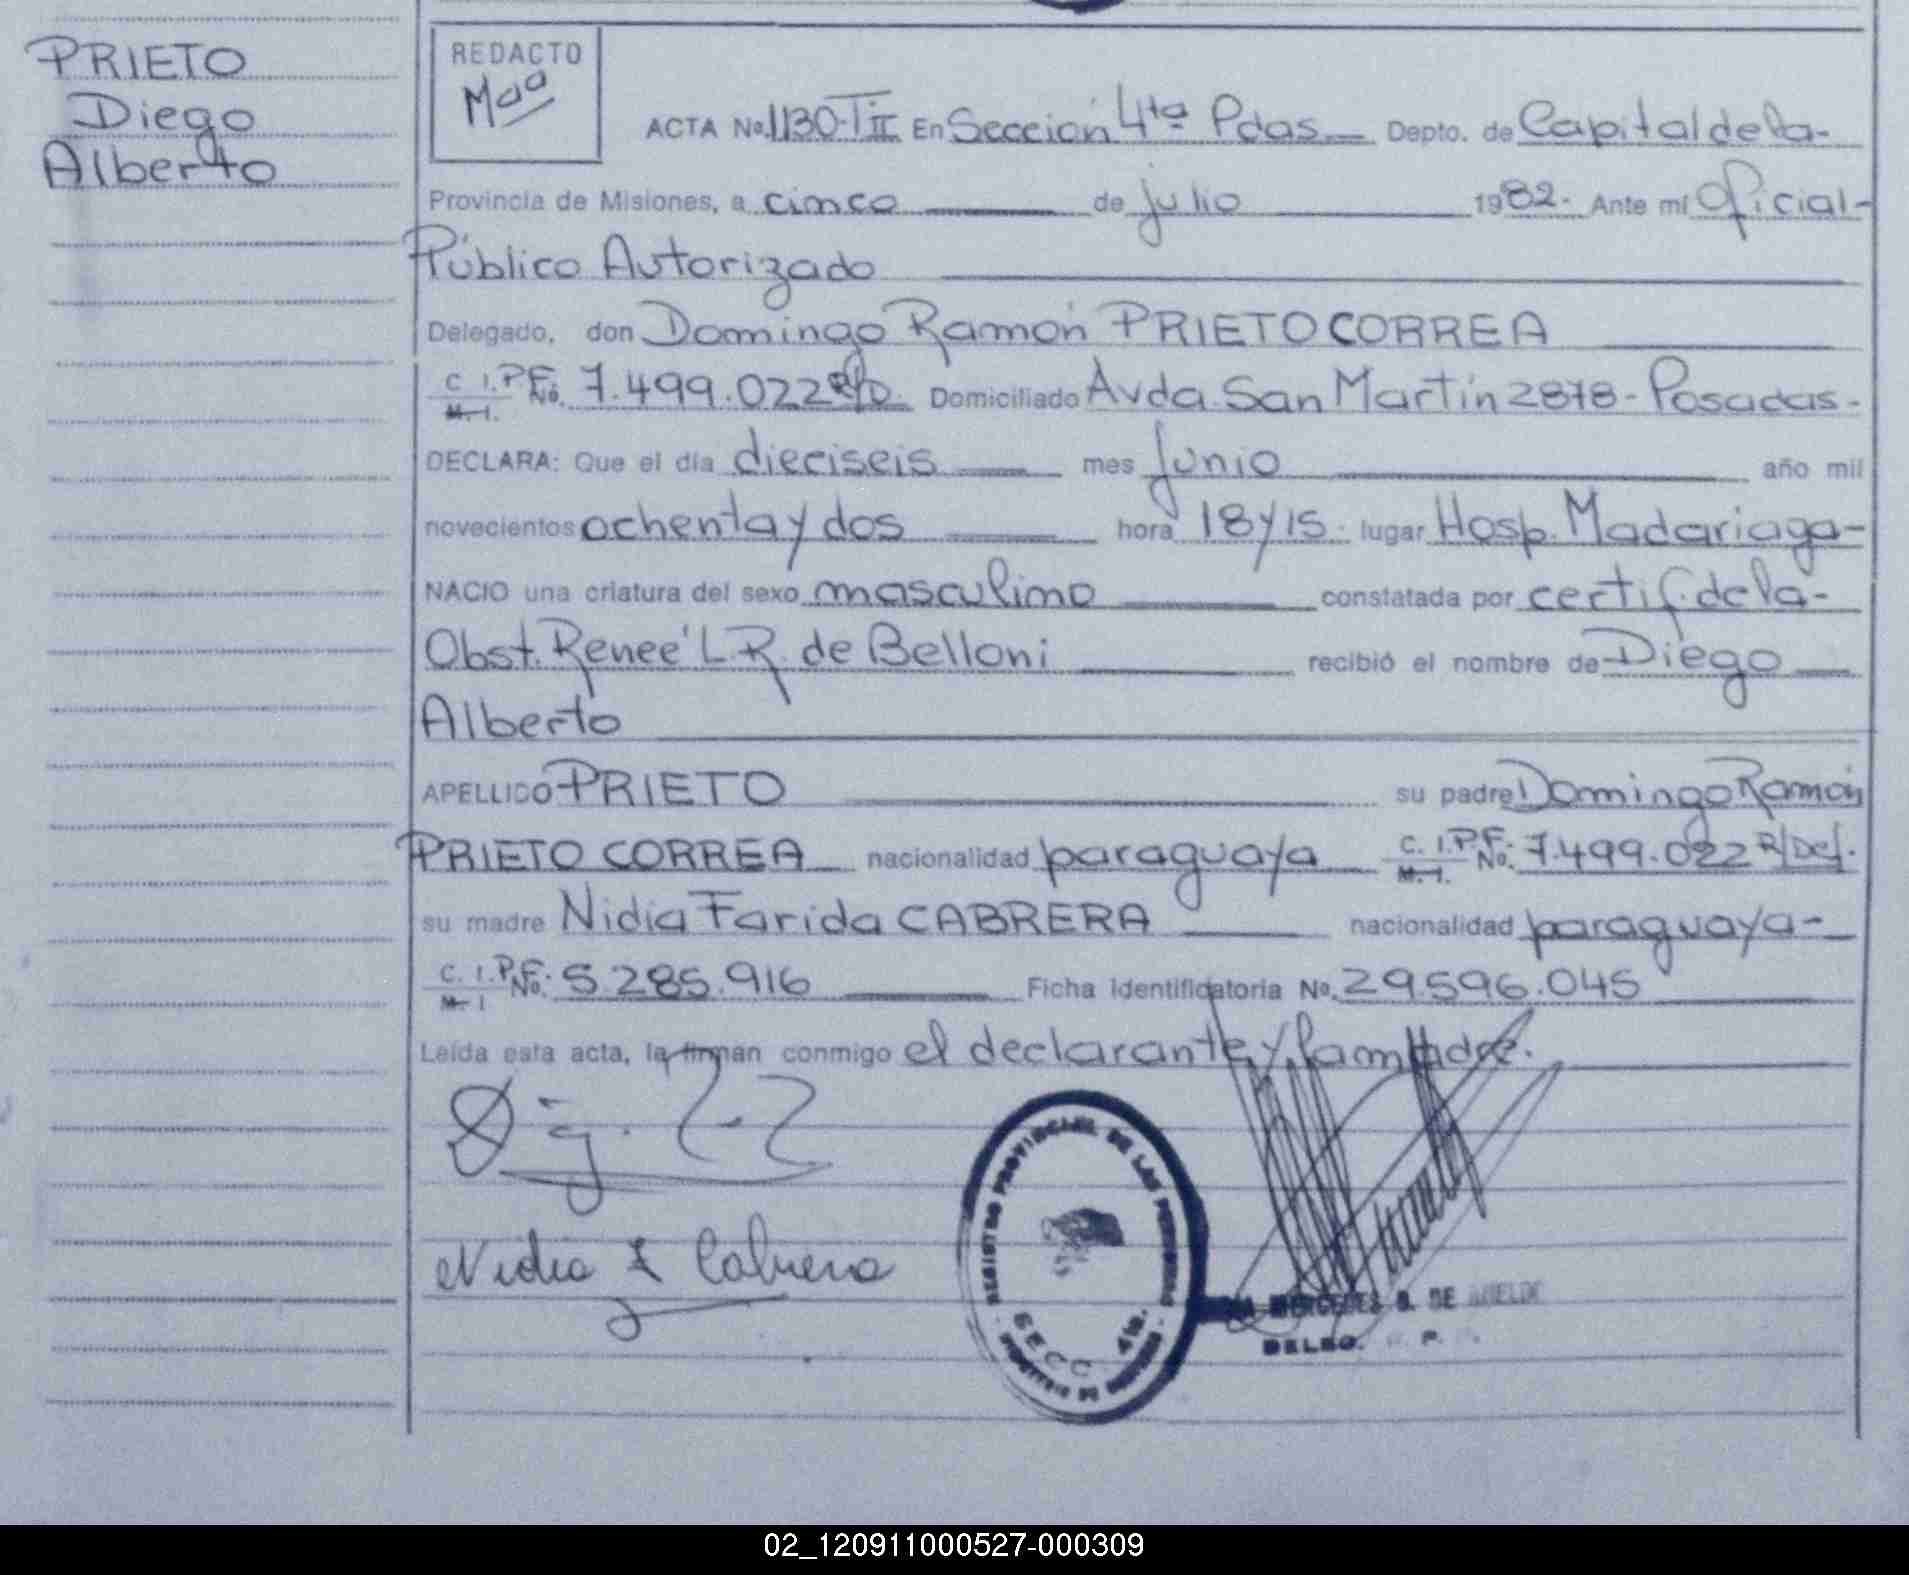 PRIETO
Diego
Alberto
REDACTO
ACTA No. 1130-T II En Sección 4ta Pdas. Depto. de Capital de la-
Provincia de Misiones, a cinco de julio 1982.- Ante mí Oficial-
Público Autorizado
Delegado, don Domingo Ramón PRIETO CORREA
C.I.P.F. M.I. No. 7.499.022 R/D. Domiciliado Avda. San Martín 2878- Posadas-
DECLARA: Que el día dieciseis mes junio año mil
novecientos ochenta y dos hora 18 y 15.- lugar Hosp. Madariaga-
NACIO una criatura del sexo masculino constatada por certif. de la-
Obst. Reneé L.R. de Belloni recibió el nombre de Diego
Alberto
APELLIDO PRIETO su padre Domingo Ramón
PRIETO CORREA nacionalidad paraguaya C.I.P.F. M.I. No. 7.499.022 R/Def.
su madre Nidia Farida CABRERA nacionalidad paraguaya-
C.I.P.F. M.I. No. 5.285.916 Ficha Identificatoria No. 29.596.045
Leída esta acta, la firman conmigo el declarante y la madre.
Nidia F Cabrera
REGISTRO PROVINCIAL DE LAS PERSONAS
SECC 4ta.
MERCEDES B. DE
DELEG.
02_120911000527-000309